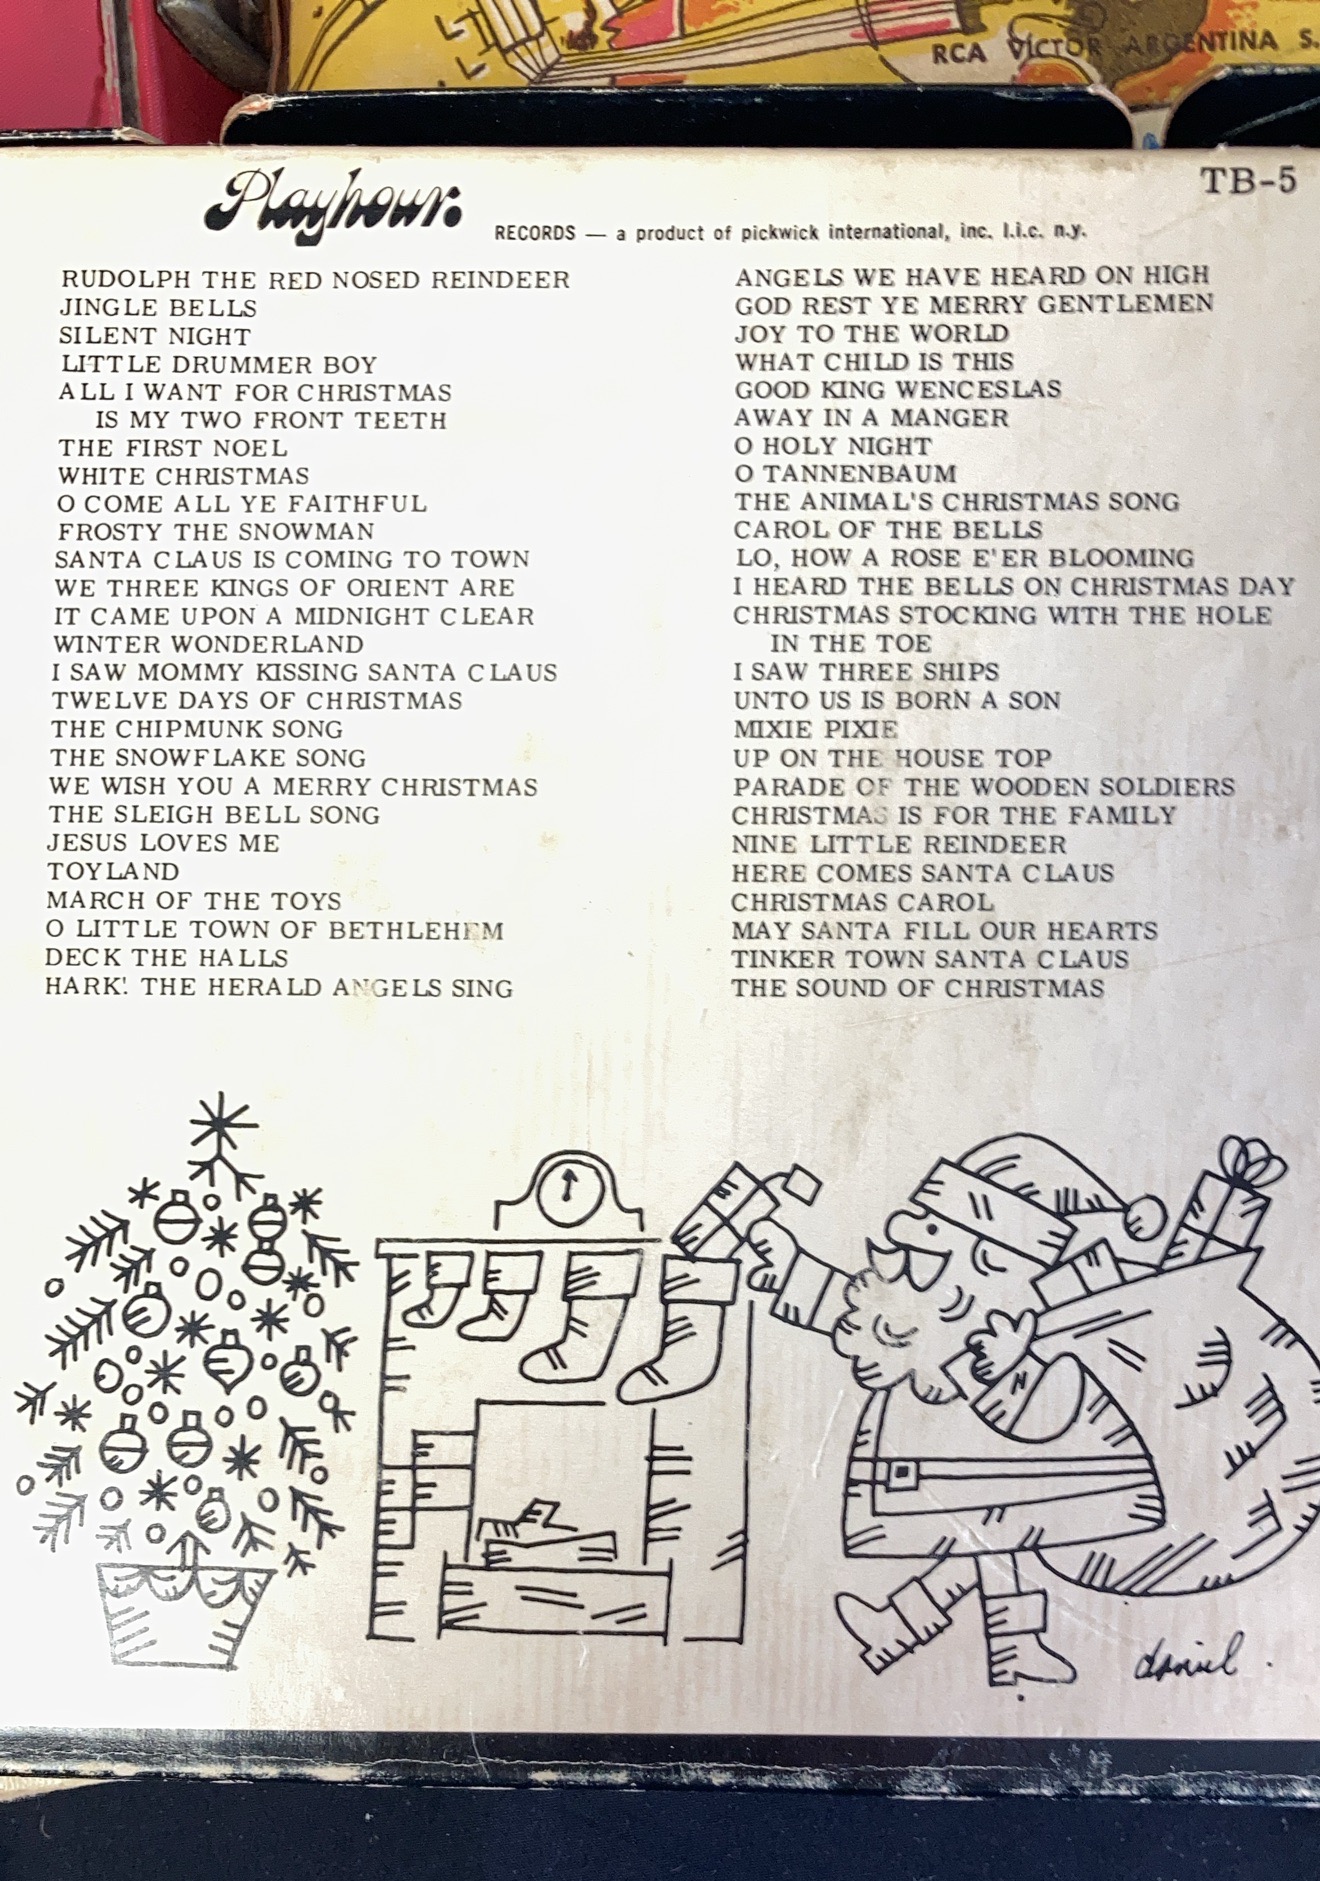 RCA VICTOR ARGENTINA S.
Playhour
TB-5
RECORDS — a product of pickwick international, inc. l.i.c. n.y.
RUDOLPH THE RED NOSED REINDEER
JINGLE BELLS
SILENT NIGHT
LITTLE DRUMMER BOY
ALL I WANT FOR CHRISTMAS
IS MY TWO FRONT TEETH
THE FIRST NOEL
WHITE CHRISTMAS
O COME ALL YE FAITHFUL
FROSTY THE SNOWMAN
SANTA CLAUS IS COMING TO TOWN
WE THREE KINGS OF ORIENT ARE
IT CAME UPON A MIDNIGHT CLEAR
WINTER WONDERLAND
I SAW MOMMY KISSING SANTA CLAUS
TWELVE DAYS OF CHRISTMAS
THE CHIPMUNK SONG
THE SNOWFLAKE SONG
WE WISH YOU A MERRY CHRISTMAS
THE SLEIGH BELL SONG
JESUS LOVES ME
TOYLAND
MARCH OF THE TOYS
O LITTLE TOWN OF BETHLEHEM
DECK THE HALLS
HARK! THE HERALD ANGELS SING
ANGELS WE HAVE HEARD ON HIGH
GOD REST YE MERRY GENTLEMEN
JOY TO THE WORLD
WHAT CHILD IS THIS
GOOD KING WENCESLAS
AWAY IN A MANGER
O HOLY NIGHT
O TANNENBAUM
THE ANIMAL'S CHRISTMAS SONG
CAROL OF THE BELLS
LO, HOW A ROSE E'ER BLOOMING
I HEARD THE BELLS ON CHRISTMAS DAY
CHRISTMAS STOCKING WITH THE HOLE
IN THE TOE
I SAW THREE SHIPS
UNTO US IS BORN A SON
MIXIE PIXIE
UP ON THE HOUSE TOP
PARADE OF THE WOODEN SOLDIERS
CHRISTMAS IS FOR THE FAMILY
NINE LITTLE REINDEER
HERE COMES SANTA CLAUS
CHRISTMAS CAROL
MAY SANTA FILL OUR HEARTS
TINKER TOWN SANTA CLAUS
THE SOUND OF CHRISTMAS
daniel.